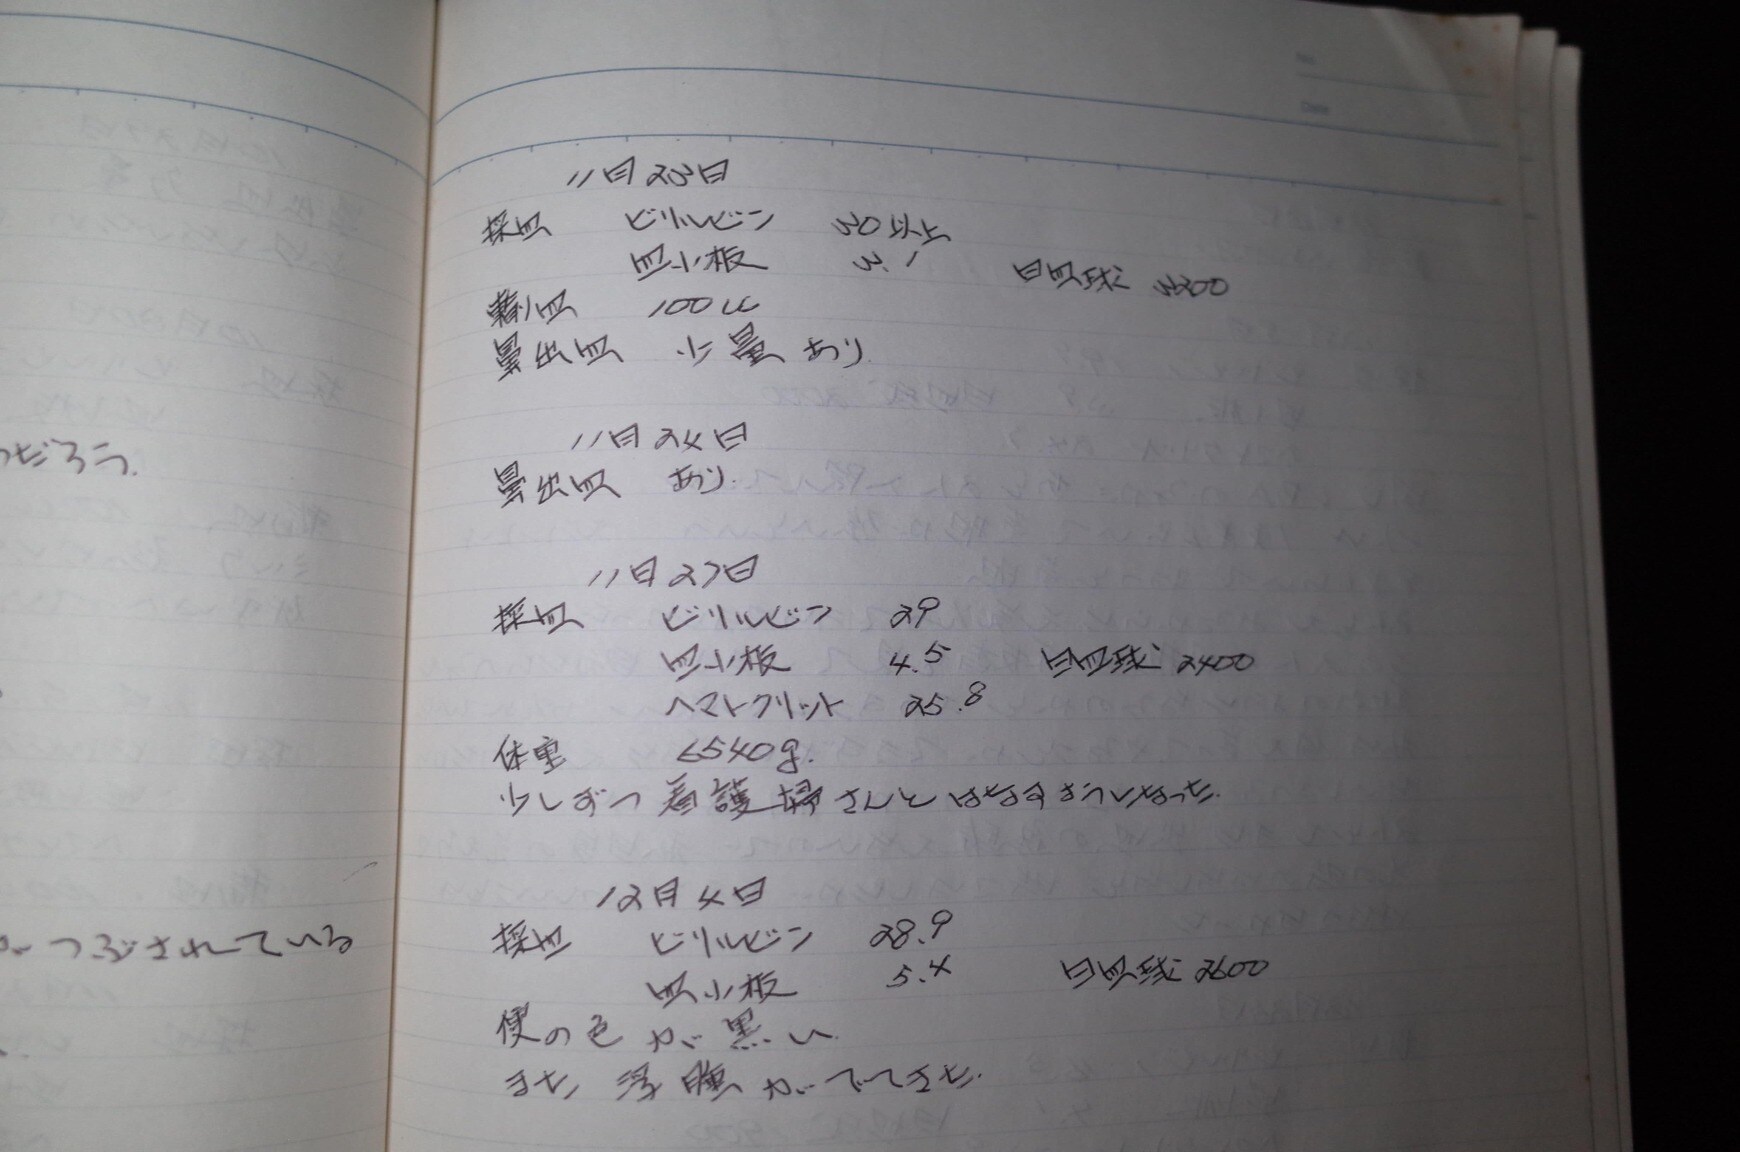 つだろう.
がつぶされている
11月23日
採血 ビリルビン 30以上
血小板 3.1 白血球 3300
輸血 100cc
鼻出血 少量あり.
11月24日
鼻出血 あり.
11月27日
採血 ビリルビン 29
血小板 4.5 白血球 2400
ヘマトクリット 25.8
体重 6540g.
少しずつ看護婦さんとはなすようになった.
12月4日
採血 ビリルビン 28.9
血小板 5.4 白血球 2600
便の色が黒い.
また浮腫がでてきた.